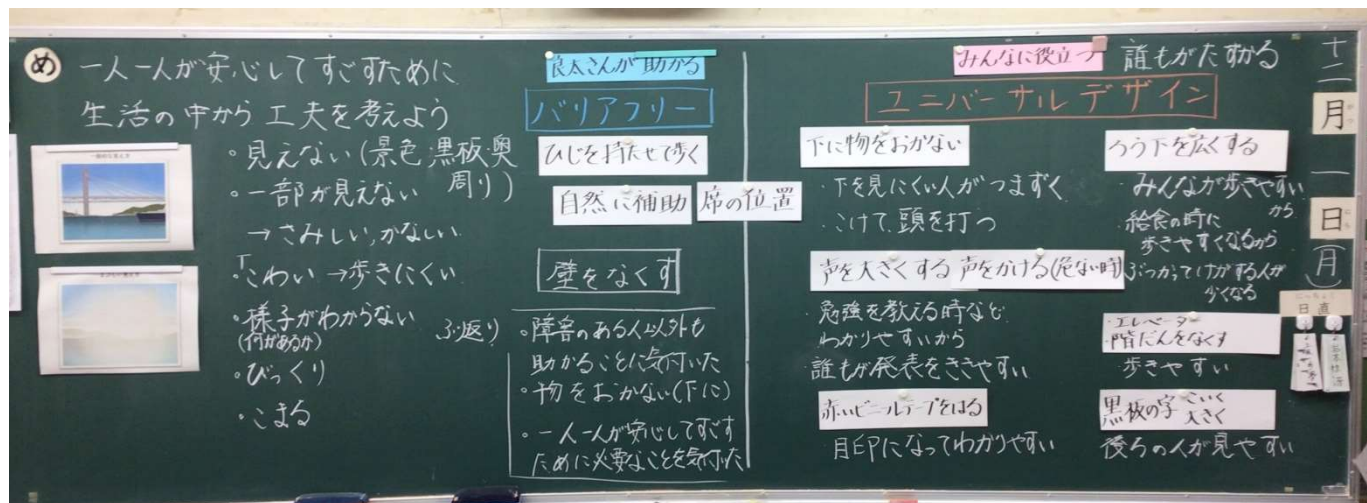 め
一人一人が安心してすごすために
生活の中から工夫を考えよう
・見えない(景色・黒板・奥
周り)
・一部が見えない
→さみしい、かなしい
・こわい→歩きにくい
・様子がわからない
(何があるか)
・びっくり
・こまる
良太さんが助かる
バリアフリー
ひじを持たせて歩く
自然に補助
席の位置
壁をなくす
ふり返り
・障害のある人以外も
助かることに気付いた
・物をおかない(下に)
・一人一人が安心してすごす
ために必要なことを気付いた
みんなに役立つ
誰もがたすかる
ユニバーサルデザイン
下に物をおかない
・下を見にくい人がつまずく
・こけて、頭を打つ
声を大きくする 声をかける(危ない時)
・勉強を教える時など
わかりやすいから
・誰もが発表をききやすい
赤いビニールテープをはる
・目印になってわかりやすい
ろう下を広くする
・みんなが歩きやすい
から
・給食の時に
歩きやすくなるから
・ぶつかってけがする人が
少なくなる
・エレベーター
・階だんをなくす
・歩きやすい
黒板の字 こいく
大きく
後ろの人が見やすい
十二月一日(月)
日直